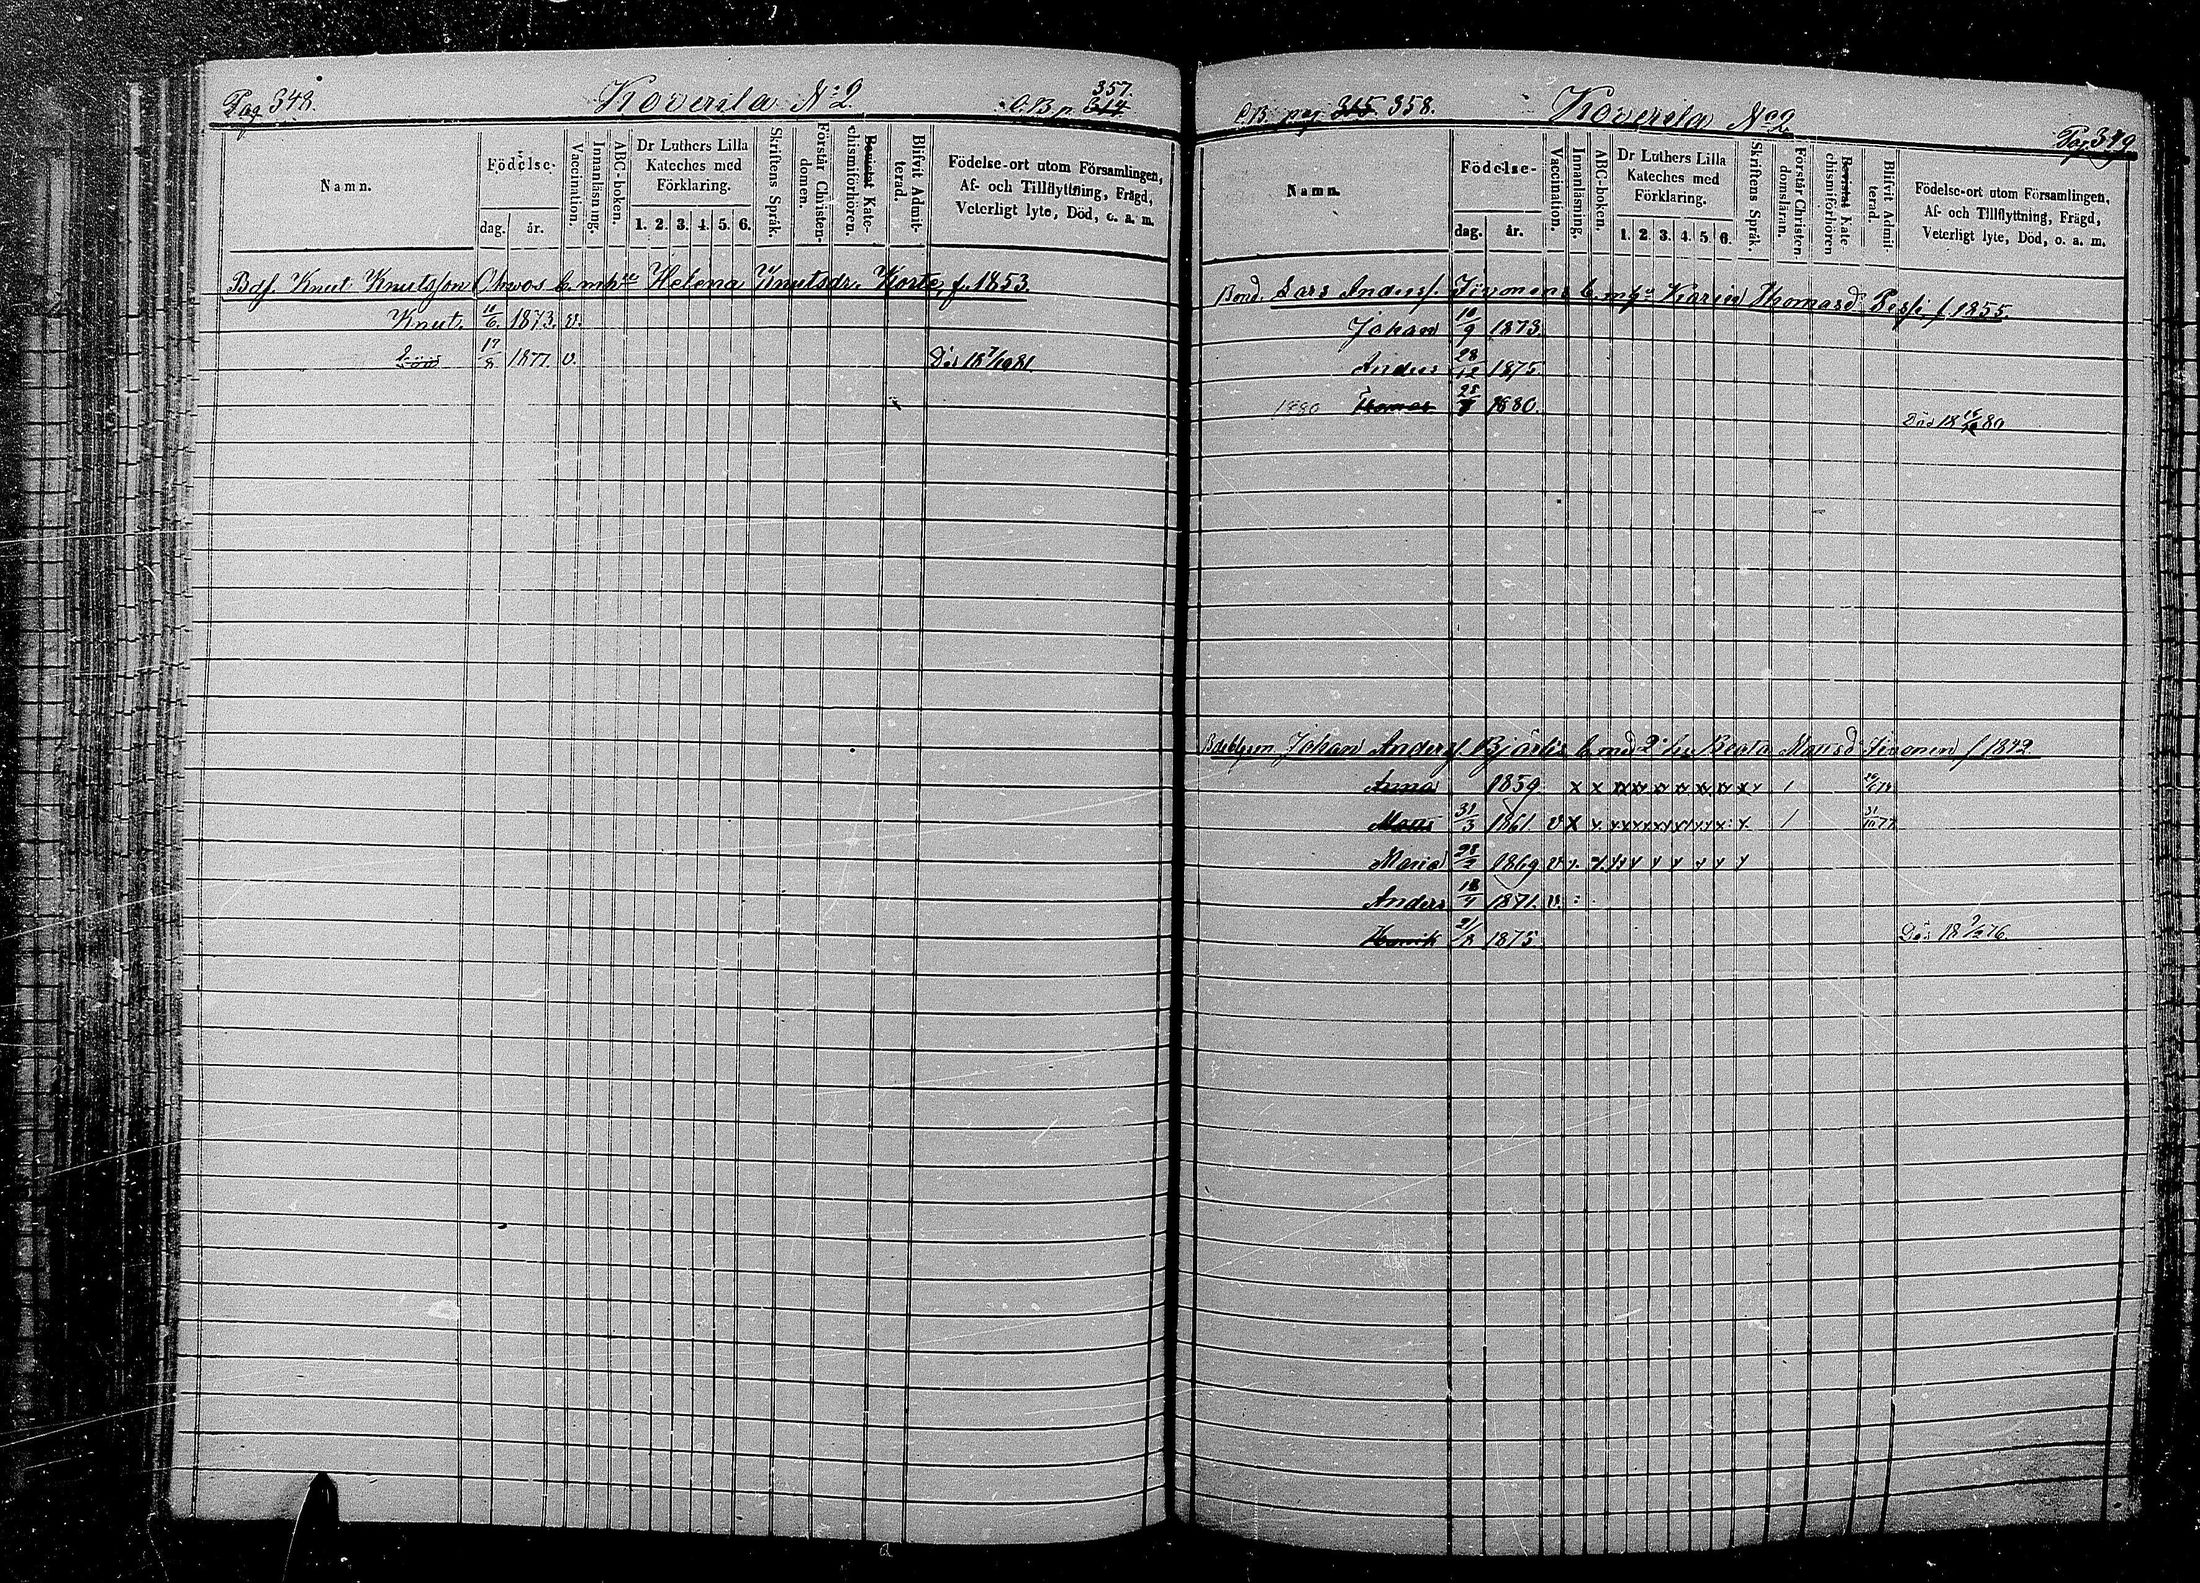 Pag 348.
Koversta No 2
357.
C.B. p. 314
Namn.
Födelse-
dag.
år.
Vaccination.
Innanläsning.
ABC-boken.
Dr Luthers Lilla
Kateches med
Förklaring.
1. 2. 3. 4. 5. 6.
Skriftens Språk.
Förstår Christen-
domen.
Bevistat Kate-
chismiförhören.
Blifvit Admit-
terad.
Födelse-ort utom Församlingen,
Af- och Tillflyttning, Frägd,
Veterligt lyte, Död, o. a. m.
Knut Knutsson b. m Helena Knutsdr. f. 1853.
Knut. 11/6 1873. v.
17/8 1877. v. Död 18 7/10 81
C.B. pag 315 358.
Koversta No 2
Pag 349
Namn.
Födelse-
dag.
år.
Vaccination.
Innanläsning.
ABC-boken.
Dr Luthers Lilla
Kateches med
Förklaring.
1. 2. 3. 4. 5. 6.
Skriftens Språk.
Förstår Christen-
domsläran.
Bevistat Kate
chismiförhören
Blifvit Admit-
terad.
Födelse-ort utom Församlingen,
Af- och Tillflyttning, Frägd,
Veterligt lyte, Död, o. a. m.
Bond. Lars Anderss. b. m Karin Thomasd. f 1855.
Johan 10/9 1873.
Anders 28/12 1875
1880 Thomas 1880. Död 18 80
Johan Anderss. b. med 2. Beata Matsd f 1842
Anna 1859 x x x x x x x x x 1
Matts 31/3 1861. v x x x x x x x x x 1 31/10 77
Maria 1869 v x x x x x x x x
Anders 18/7 1871. v.
Henrik 21/8 1875 Död 18 9/2 76.